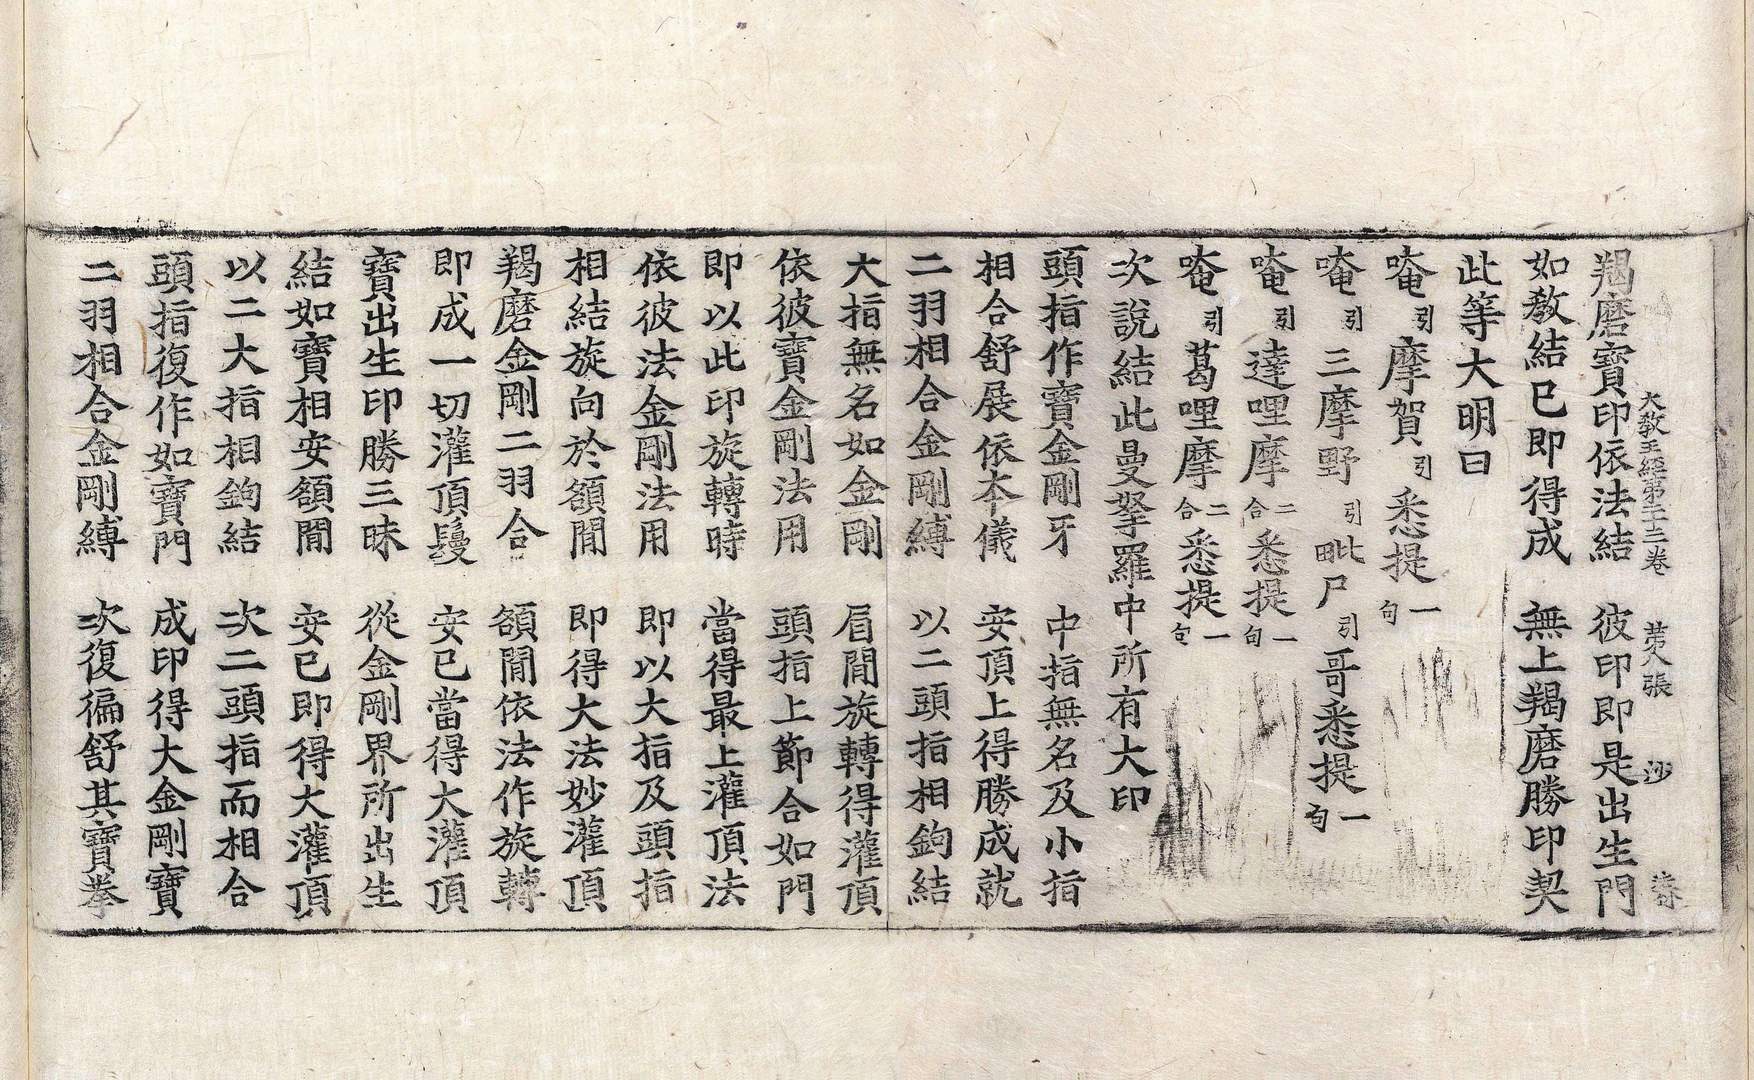 大教王經第二十三卷 第八張 沙
羯磨寶印依法結 彼印即是出生門
如教結已即得成 無上羯磨勝印契
此等大明曰
唵引摩賀引悉提一句
唵引三摩野引毗尸引哥悉提一句
唵引達哩摩二合悉提一句
唵引葛哩摩二合悉提一句
次說結此曼拏羅中所有大印
頭指作寶金剛牙 中指無名及小指
相合舒展依本儀 安頂上得勝成就
二羽相合金剛縛 以二頭指相鉤結
大指無名如金剛 眉間旋轉得灌頂
依彼寶金剛法用 頭指上節合如門
即以此印旋轉時 當得最上灌頂法
依彼法金剛法用 即以大指及頭指
相結旋向於額間 即得大法妙灌頂
羯磨金剛二羽合 額間依法作旋轉
即成一切灌頂鬘 安已當得大灌頂
寶出生印勝三昧 從金剛界所出生
結如寶相安額間 安已即得大灌頂
以二大指相鉤結 次二頭指而相合
頭指復作如寶門 成印得大金剛寶
二羽相合金剛縛 次復徧舒其寶拳